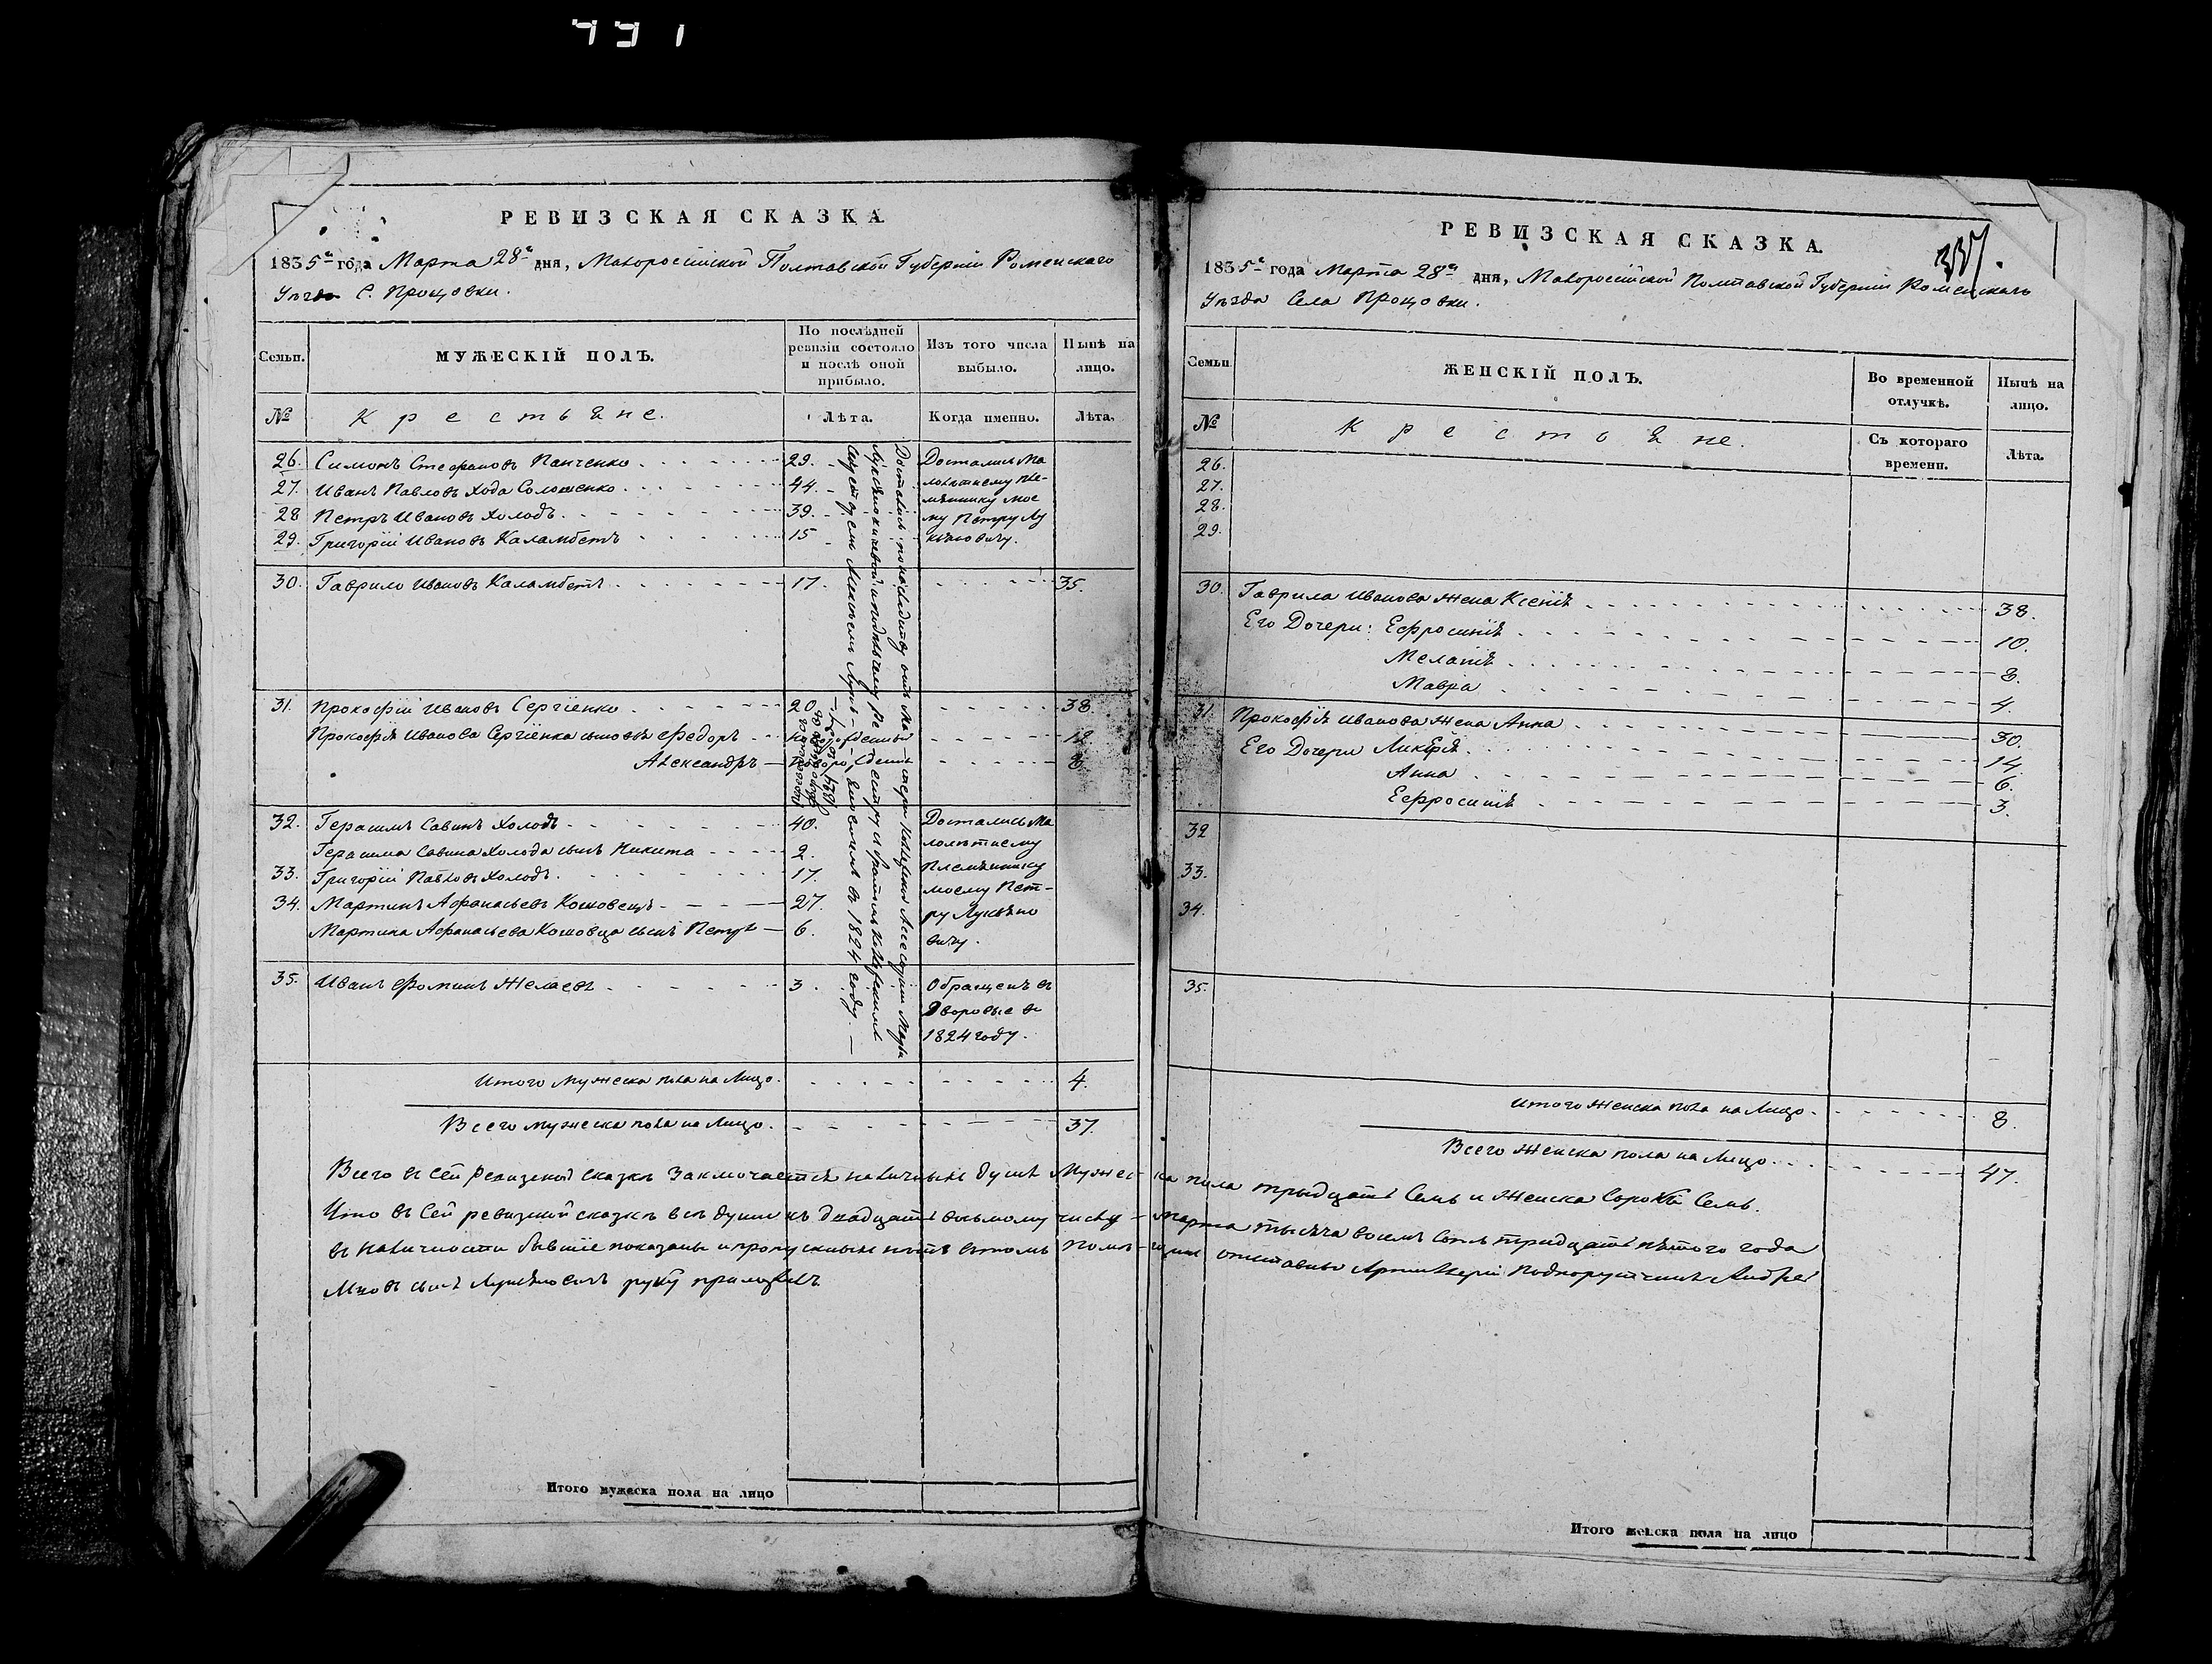 РЕВИЗСКАЯ СКАЗКА
1835го года Марта 28го дня, Малоросійской Полтавской Губерніи Роменскаго
Уѣзда С. Процовки.
Семьи.
МУЖЕСКІЙ ПОЛЪ.
По послѣдней ревизіи состояло и послѣ оной прибыло.
Изъ того числа выбыло.
Нынѣ на лицо.
№
Крестьяне.
Лѣта.
Когда именно.
Лѣта.
26. Симонъ Стефановъ Панченко 29. Достались ма
27. Иванъ Павловъ Хода Соломенко 44. лолѣтнему пле-
мѣннику мое
28 Петръ Ивановъ Холодъ 39. му Петру Лу
29. Григорій Ивановъ Каламбетъ 15 кіяновичу.
30. Гаврило Ивановъ Каламбетъ 17. 35.
31. Прокофій Ивановъ Сергіенко 20 38
Прокофія Иванова Сергіенка сыновья Федоръ новорожденный 12
Александръ новорожденъ 8
32. Герасимъ Савинъ Холодъ 40. Достались ма
Герасима Савина Холода сынъ Никита 2. лолѣтнему
33. Григорій Павловъ Холодъ 17. племѣннику
моему Пет-
34. Мартинъ Афанасьевъ Кошовецъ 27. ру Лукіяно
Мартина Афанасьева Кошовца сынъ Петръ 6. вичу.
35. Иванъ Фоминъ Желаевъ 3. Обращенъ въ
Дворовые въ
1824 году.
Достались по наслѣдству отъ Ма-
въ 1824 году.
Итого мужеска пола на лицо. 4.
Всего мужеска пола на лицо. 37.
Всего въ сей ревизской сказкѣ заключается наличныхъ душъ мужес-
Что въ сей ревизской сказкѣ всѣ души къ двадцать восьмому числу
въ наличности бывшіе показаны и пропускныхъ нѣтъ въ томъ помѣ-
сынъ руку приложилъ
Итого мужеска пола на лицо
РЕВИЗСКАЯ СКАЗКА.
337.
1835го года Марта 28го дня, Малоросійской Полтавской Губерніи Роменскаго
Уѣзда Села Процовки.
Семьи
ЖЕНСКІЙ ПОЛЪ.
Во временной отлучкѣ.
Нынѣ на лицо.
№
Крестьяне.
Съ котораго времени.
Лѣта.
26.
27.
28.
29.
30. Гаврила Иванова жена Ксенія 38.
Его Дочери: Ефросинія 10.
Меланія 8.
Мавра 4.
31. Прокофія Иванова жена Анна 30.
Его Дочери Ликерія 14.
Анна 6.
Ефросинія 3.
32
33.
34.
35.
Итого женска пола на лицо. 8.
Всего женска пола на лицо. 47.
ка пола тридцать семь и женска сорокъ семь.
марта тысяча восемь сотъ тридцать пятого года
щикъ отставной Артиллеріи Подпорутчикъ Андрей
Итого женска пола на лицо